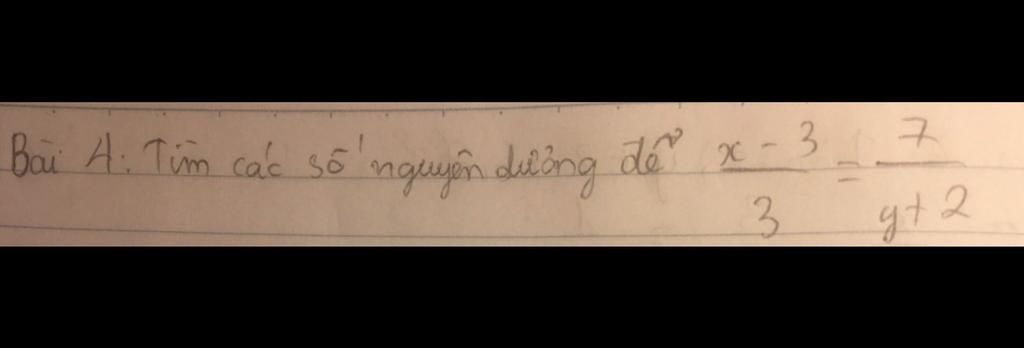 Bài 4. Tìm các số nguyên dương để \frac{x-3}{3} = \frac{7}{y+2}